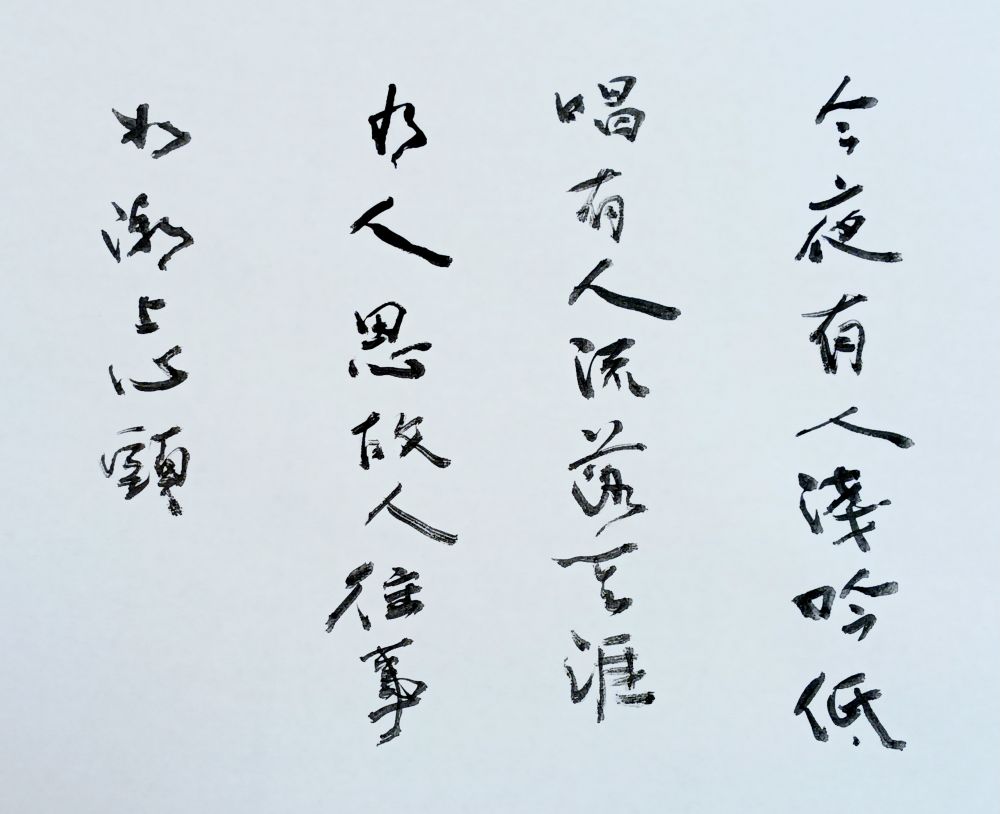 今夜有人淺吟低
唱有人流落天涯
有人思故人往事
如潮上心頭